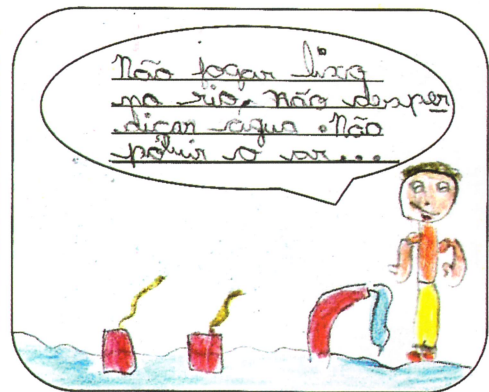 Não jogar lixo
no rio. Não desper
diçar água. Não
poluir o ar...